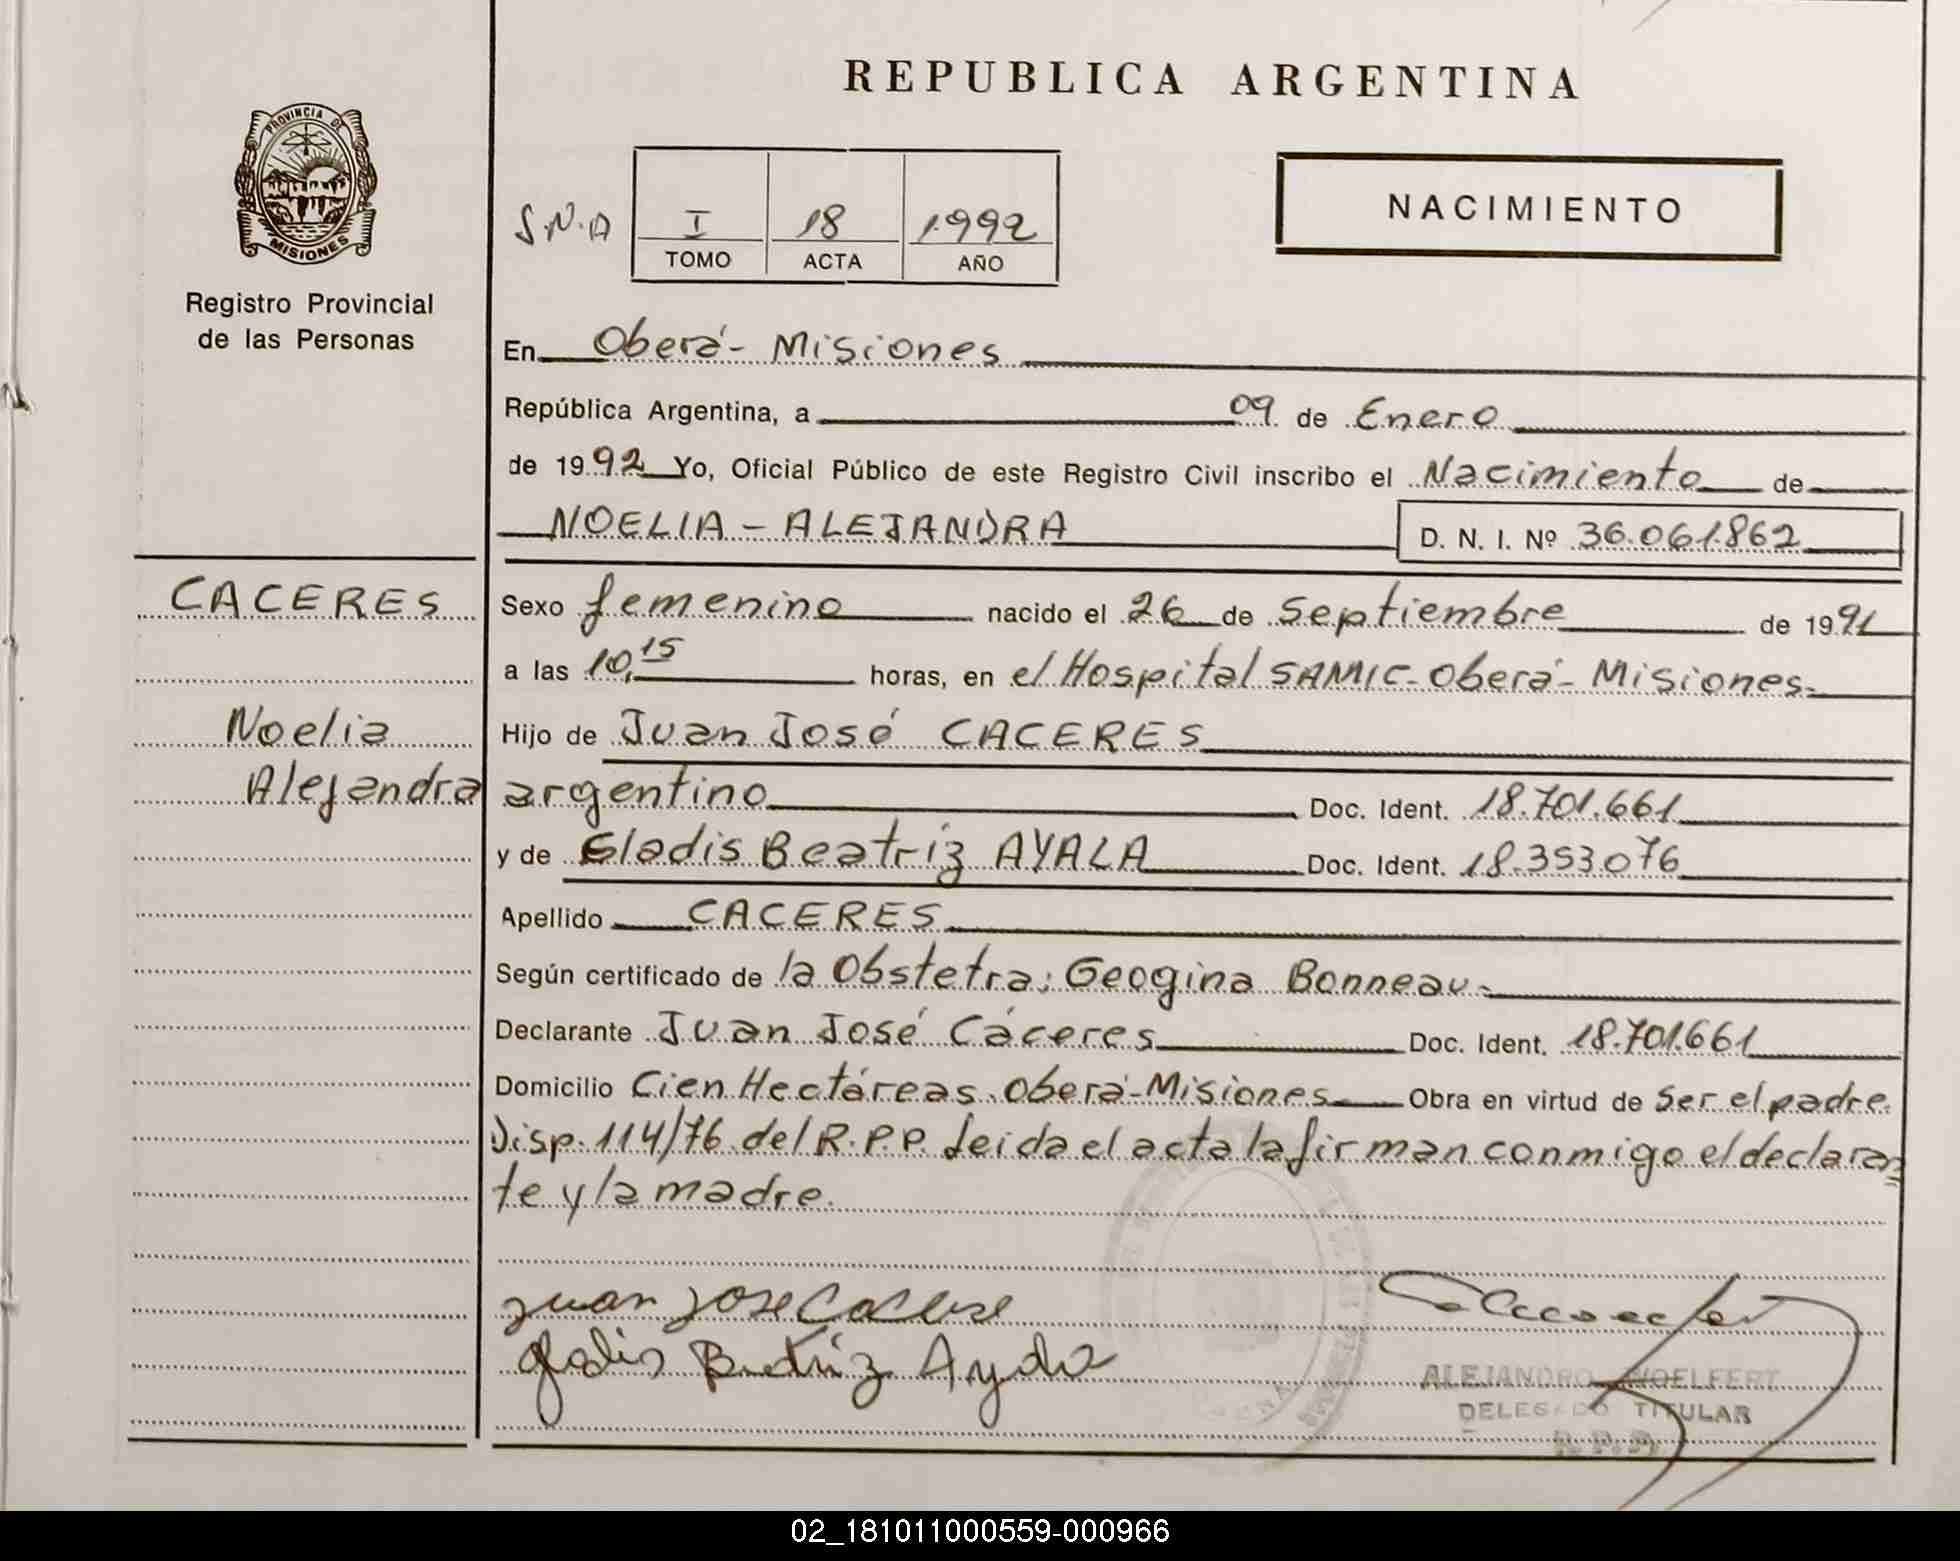 REPUBLICA ARGENTINA
PROVINCIA DE
MISIONES
Registro Provincial
de las Personas
S.N.A
I 18 1992
TOMO ACTA AÑO
NACIMIENTO
En Oberá - Misiones
República Argentina, a 09 de Enero
de 1992 Yo, Oficial Público de este Registro Civil inscribo el Nacimiento de
NOELIA - ALEJANDRA D. N. I. Nº 36.061.862
CACERES
Noelia
Alejandra
Sexo femenino nacido el 26 de Septiembre de 1991
a las 10,15 horas, en el Hospital SAMIC - Oberá - Misiones.
Hijo de Juan José CACERES
argentino Doc. Ident. 18.701.661
y de Gladis Beatriz AYALA Doc. Ident. 18.353.076
Apellido CACERES
Según certificado de la Obstetra: Geogina Bonneau.
Declarante Juan José Cáceres Doc. Ident. 18.701.661
Domicilio Cien Hectáreas. Oberá - Misiones. Obra en virtud de ser el padre.
Disp. 114/76 del R.P.P. Leida el acta la firman conmigo el declaran
te y la madre.
Juan Jose Cacere
Gladis Beatriz Ayala
ALEJANDRO WOELFERT
DELEGADO TITULAR
R.P.P.
02_181011000559-000966